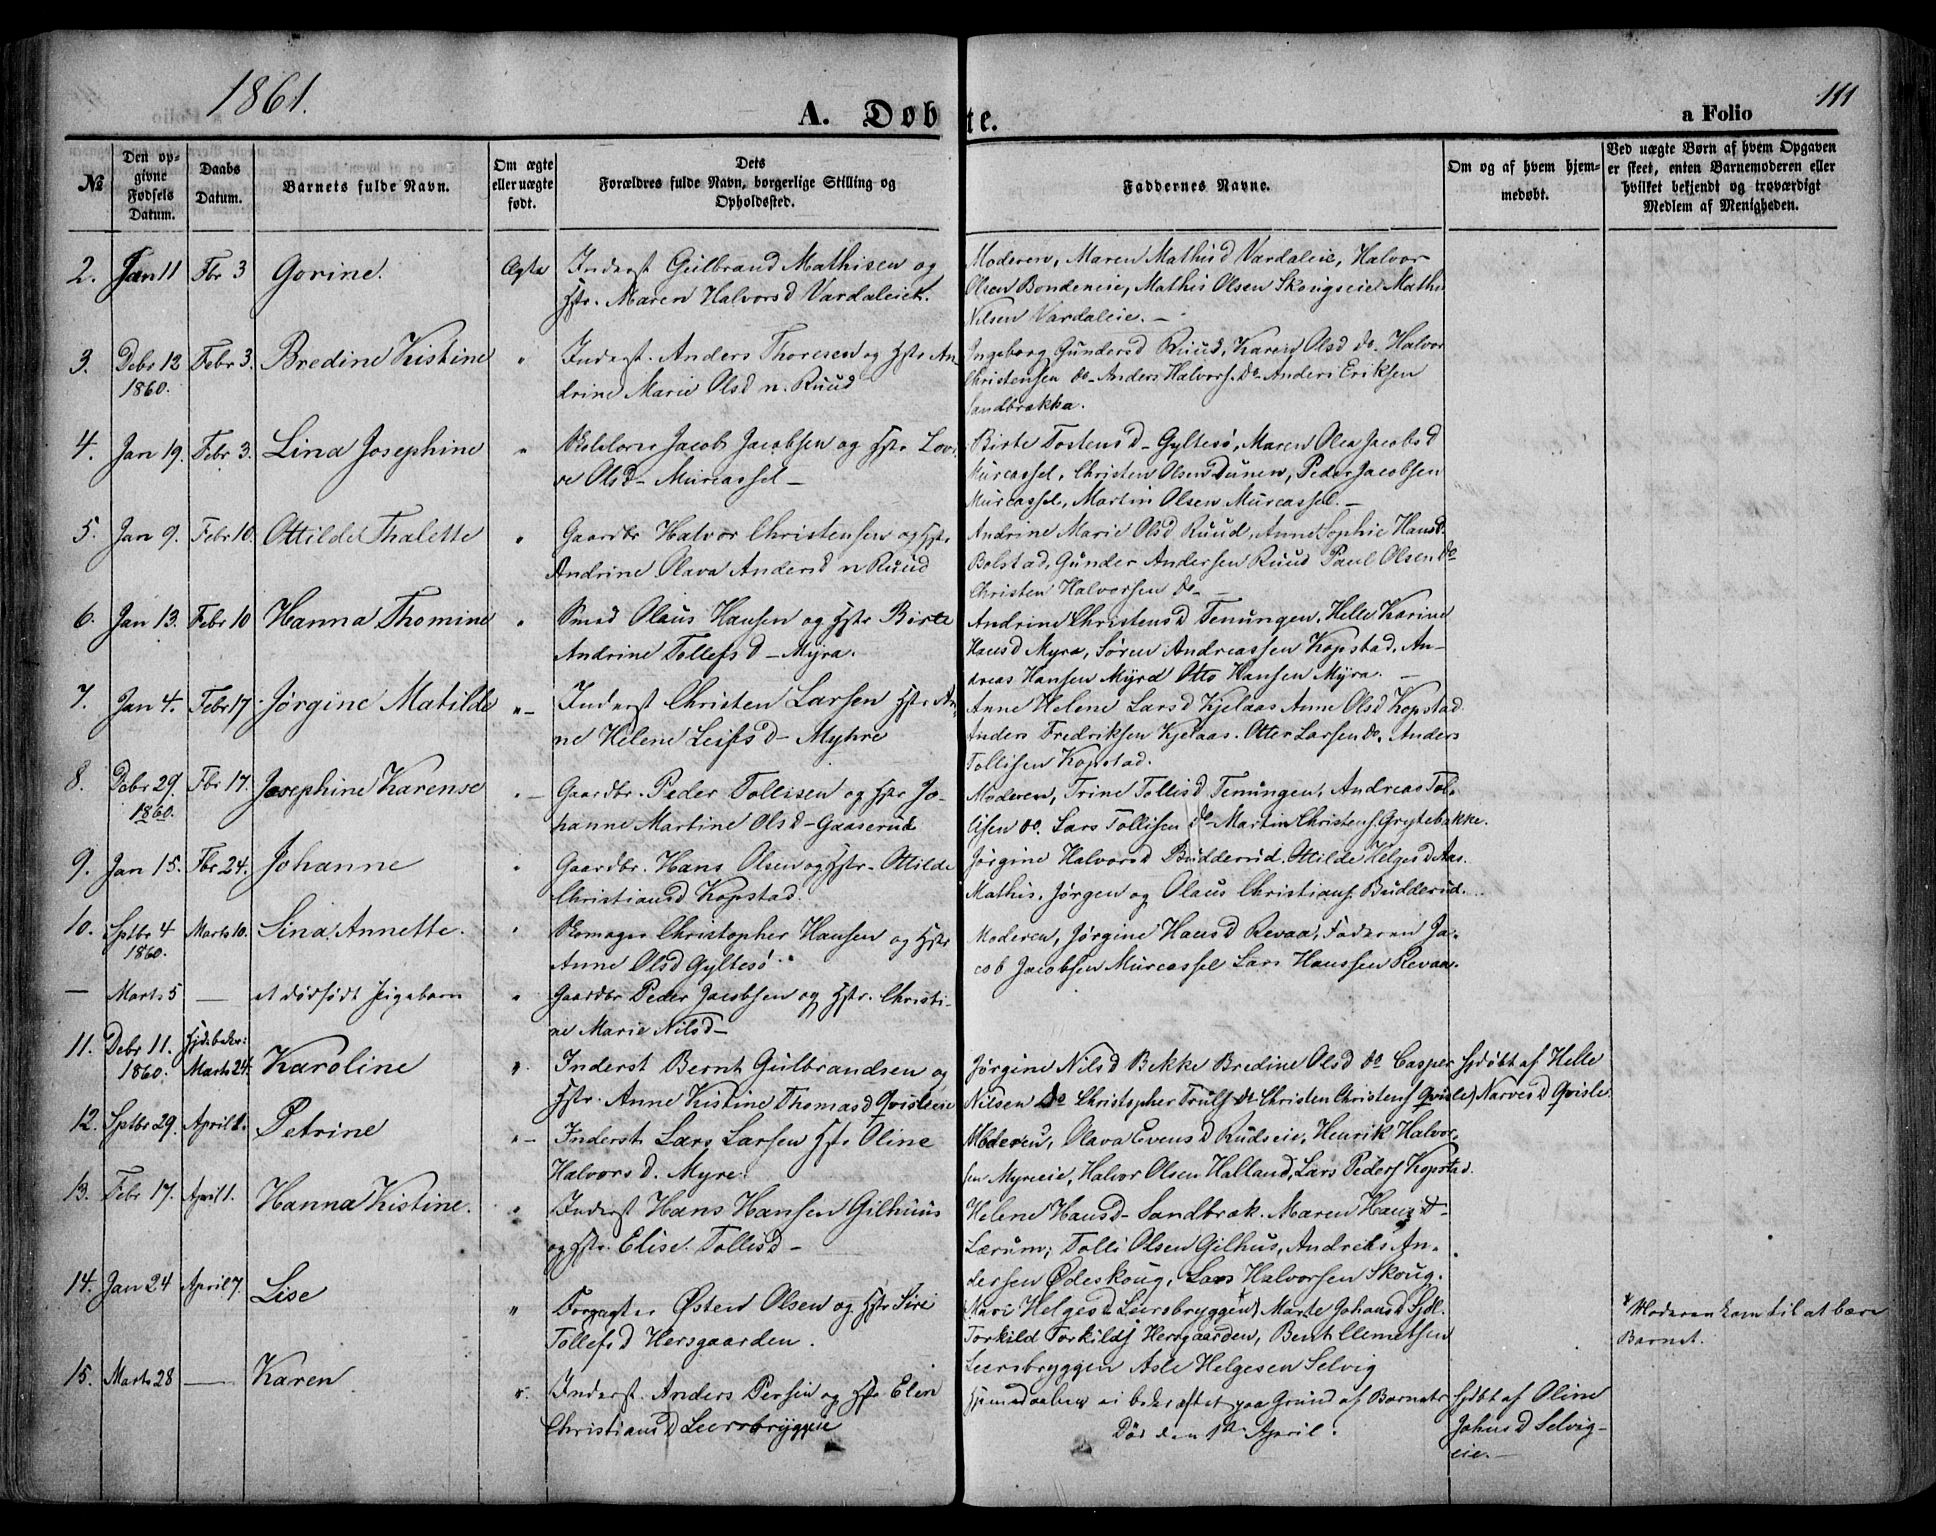 1861.
111
A. Døbte.
a Folio
№
Den opgivne Fødsels Datum.
Daabs Datum.
Barnets fulde Navn.
Om ægte eller uægte født.
Dets Forældres fulde Navn, borgerlige Stilling og Opholdssted.
Faddernes Navne.
Om og af hvem hjemmedøbt.
Ved uægte Børn af hvem Opgaven er skeet, enten Barnemoderen eller hvilket bekjendt og troværdigt Medlem af Menigheden.
2. Jan 11 Fbr 3 Gorine. Ægte Inderst Gulbrand Mathisen og
Hstr. Maren Halvorsd Vardaleiet.
Moderen, Maren Mathisd Vardaleie, Halvor
Olsen Bondeneie, Mathis Olsen Skougseie Mathis
Nilsen Vardaleie. —
3. Debr 12 1860. Febr 3. Bredine Kistine " Inderst. Anders Thoresen og Hstr An-
drine Marie Olsd n. Ruud
Ingeborg Gundersd Ruud, Karen Olsd do. Halvor
Christensen do – Anders Halvors. do – Anders Eriksen
Sandbrækka.
4. Jan 19. Febr 3. Lina Josephine " Skolelærer Jacob Jacobsen og Hstr Lov-
ve Olsd – Murcassel –
Birte Tostensd – Gyltesø, Maren Olea Jacobsd
Murcassel, Christen Olsen Dunen, Peder Jacobsen
Murcassel, Martin Olsen Murcassel. —
5. Jan 9. Febr 10. Ottilde Thalette " Gaardbr Halvor Christensen og Hstr
Andrine Olava Andersd n Ruud
Andrine Marie Olsd Ruud, Anne Sophie Hansd
Bolstad, Gunder Andersen Ruud Paul Olsen do
Christen Halvorsen do –
6. Jan 13. Febr 10 Hanna Thomine " Smed Olaus Hansen og Hstr Birte
Andrine Tollefsd – Myra.
Andrine Christensd Tenungen, Helle Karine
Hansd Myra, Søren Andreassen Kopstad, An-
dreas Hansen Myrd Otto Hansen Myra. —
7. Jan 4. Febr 17. Jørgine Matilde " – Inderst Christen Larsen Hstr An-
ne Helene Leifsd – Myhre
Anne Helene Larsd Kjelaas Anne Olsd Kopstad.
Anders Fredriksen Kjelaas. Otter Larsen do. Anders
Tollisen Kopstad.
8. Debr 29. 1860. Fbr 17. Josephine Karense " – Gaardbr. Peder Tollisen og Hstr Jo-
hanne Martine Olsd – Gaaserud
Moderen, Trine Tollisd Tenungen, Andreas Tol-
lisen do. Lars Tollisen do – Martin Christens. Grytebakke.
9. Jan 15. Fbr 24. Johanne " Gaardbr. Hans Olsen og Hstr – Ottilde
Christiansd Kopstad.
Jørgine Halvorsd Budderud. Ottilde Helgesd Aas.
Mathis. Jørgen og Olaus Christians. Budderud.
10. Sptbr 4 1860. Marts 10. Lina Annette. " Skomager Christopher Hansen og Hstr
Anne Olsd Gyltesø.
Moderen, Jørgine Hansd Revaa, Faderen Ja-
cob Jacobsen Murcassel Lars Hanssen Revaa.
— Marts 5 — et dødfødt Pigebarn " Gaardbr Peder Jacobsen og Hstr. Christi-
ne Marie Nilsd –
11. Debr 11. 1860. Marts 24. Karoline ". Inderst Bernt Gulbrandsen og
Hstr. Anne Kistine Thomasd Qvisleie
Jørgine Nilsd Bekke Bredine Olsd do Casper
Nilsen do Christopher Truls do Christen Christens Qvisle
Hjdøbt af Helle
Narvesd Qvisle
12. Sptbr 29. April 1. Petrine " – Inderst. Lars Larsen Hstr Oline
Halvorsd. Myre.
Moderen, Olava Evensd Rudseie, Henrik Halvor-
sen Myreeie, Halvor Olsen Halland, Lars Peders Kopstad.
13. Febr 17. April 1. Hanna Kistine. " Inderst Hans Hansen Gilhuus
og Hstr. Elise. Tollisd –
Helene Hansd – Sandbræk. Maren Hansd –
Lærum; Tolli Olsen Gilhus, Andreas An-
dersen Ødeskoug, Lars Halvorsen Skoug.
14. Jan 24 April 7. Lise " Forpagter Østen Olsen og Hstr Siri
Tollefsd Hersgaarden.
Mari Helgesd Leersbryggen Marte Johansd Hjdl.
Torkild Torkilds Herrgaarden, Bent Clemetsen
Leersbryggen Asle Helgesen Selvig
* Moderen kom til at bære
Barnet.
15. Marts 28 — Karen ". Inderst. Anders Persen og Hstr Elin
Christiansd Leersbryggen
Hjemmedaaben ei bekræftet paa Grund af Barnets
Død den 1ste April.
Hjdøbt af Oline
Johnsd Selvig-
eie. —